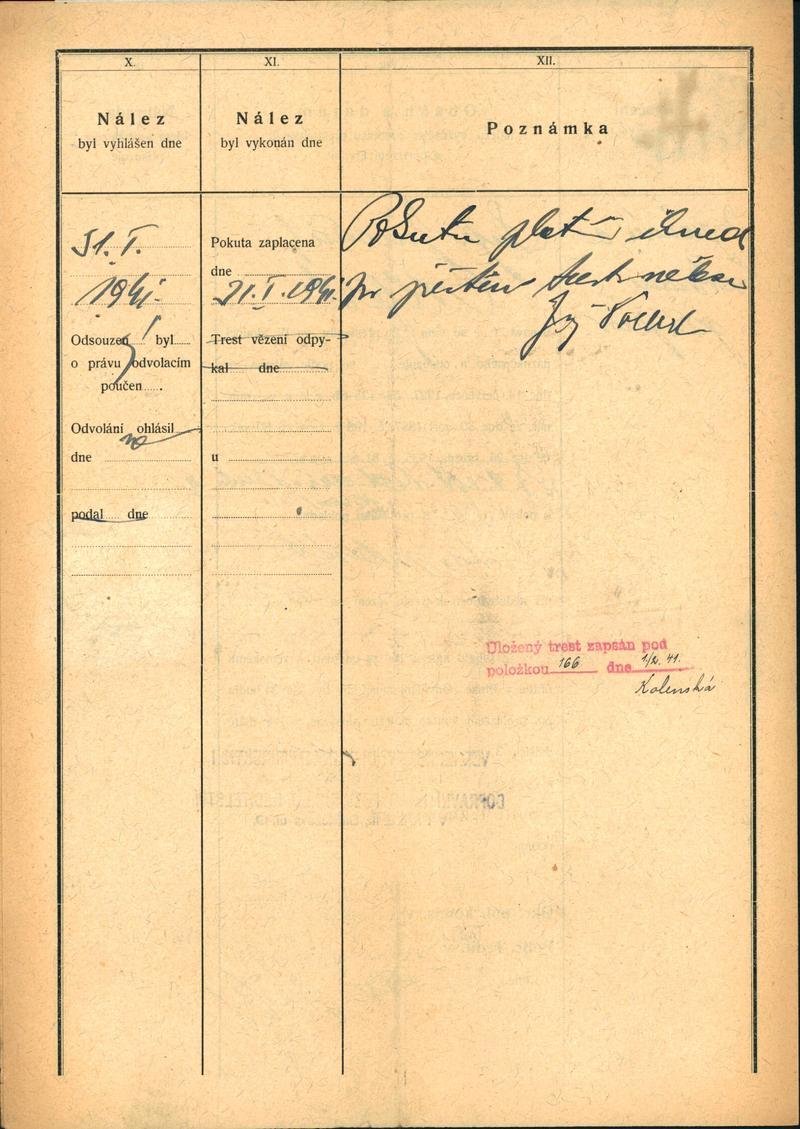 X.
Nález
byl vyhlášen dne
31. I.
1941.
Odsouzený byl
o právu odvolacím
poučen
Odvolání ohlásil
dne ne
podal dne
XI.
Nález
byl vykonán dne
Pokuta zaplacena
dne
31. I. 1941.
Trest vězení odpy-
kal dne
u
XII.
Poznámka
Pokutu platí ihned
Uložený trest zapsán pod
položkou 166 dne 1/2. 41.
Kolenská